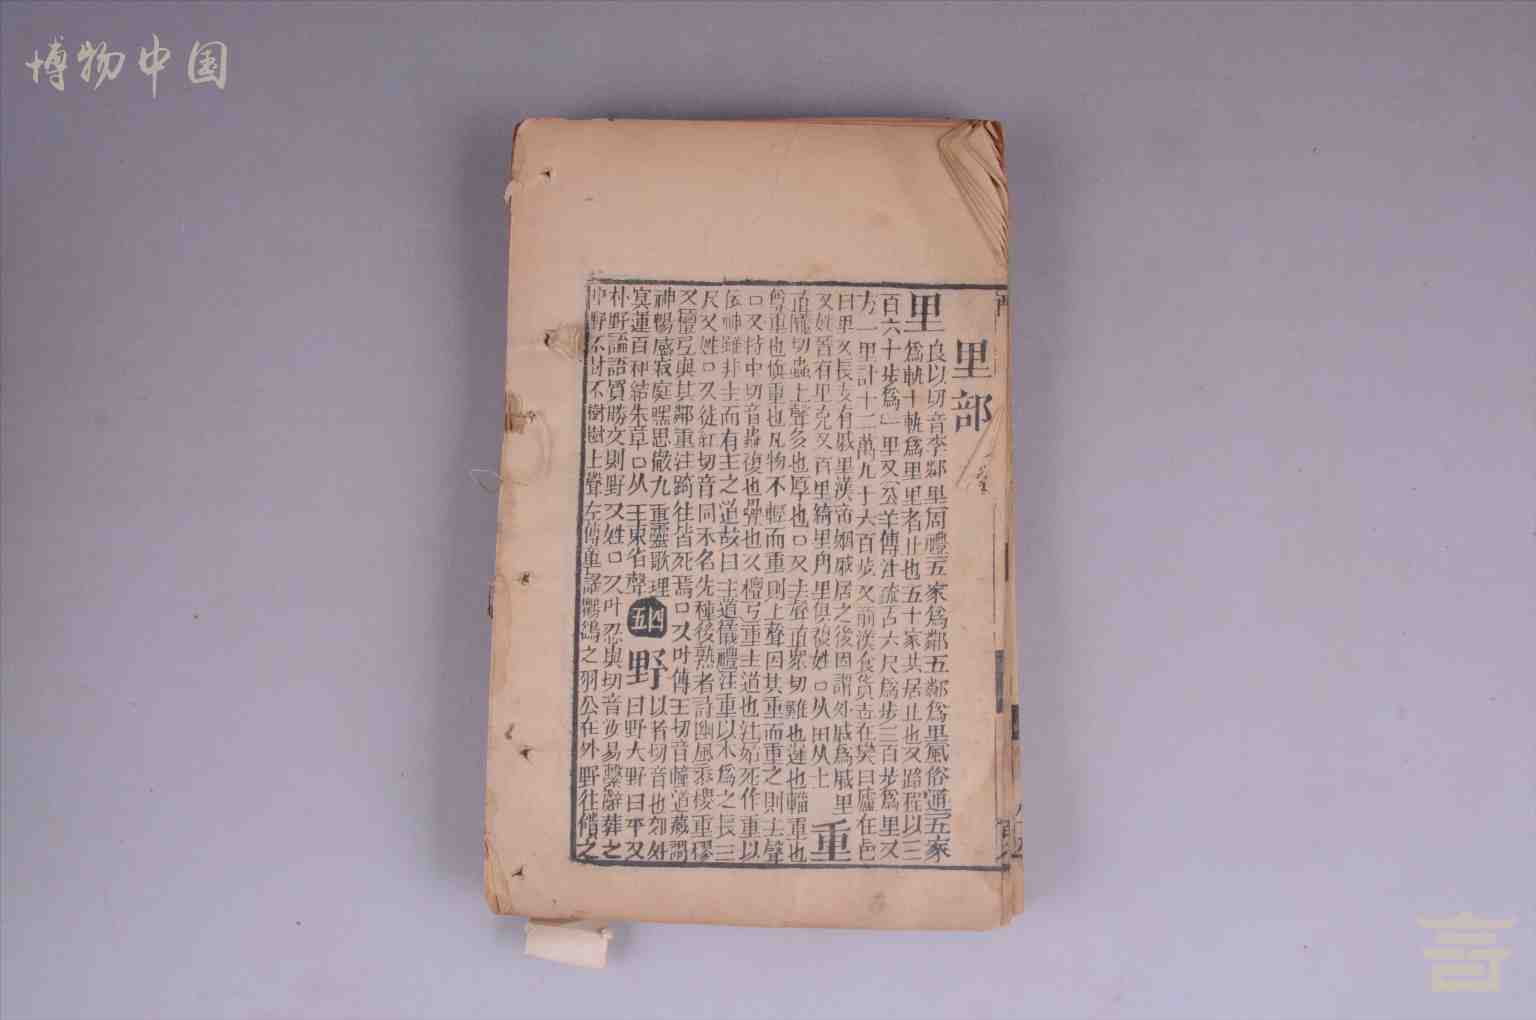 博物中国
里部
里
良以切音李鄰里周禮五家爲鄰五鄰爲里風俗通五家
爲軌十軌爲里里者止也五十家共居止也又路程以三
百六十步爲一里又公羊傳注疏古六尺爲步三百步爲里又
方一里計十二萬九千六百步又前漢食貨志在埜曰廬在邑
曰里又長安有戚里漢帝姻戚居之後因謂外戚爲戚里
又姓晋有里克又百里綺里甪里俱複姓口从田从土
重
直隴切蟲上聲多也厚也口又去聲直衆切難也遲也輜重也
尊重也愼重也凡物不輕而重則上聲因其重而重之則去聲
口又持中切音蟲復也疊也又檀弓重主道也注始死作重以
依神雖非主而有主之道故曰主道儀禮注重以木爲之長三
尺又姓口又徒紅切音同禾名先種後熟者詩豳風黍稷重穋
又檀弓與其鄰重汪踦往皆死焉口又叶傳王切音幢道藏謌
神暢感寂庭曖思徹九重靈歌理
冥運百神結朱草口从王東省聲
四五
野
以者切音也郊外
曰野大野曰平又
朴野論語質勝文則野又姓口又叶忍與切音汝易繫辭葬之
中野不封不樹樹上聲左傳童謠鸜鵒之羽公在外野往饋之
言